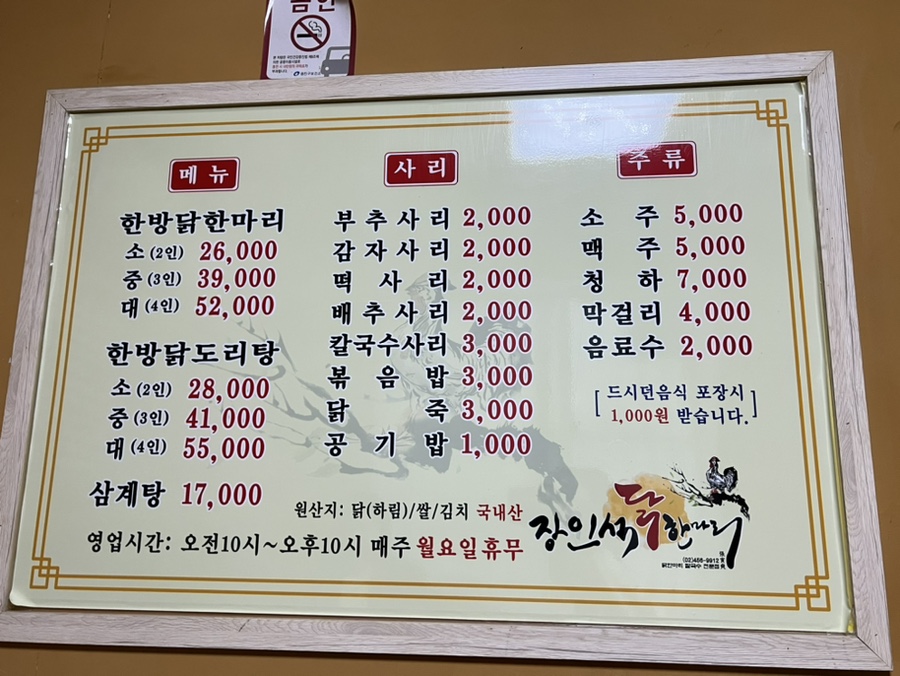 금연
메뉴
한방닭한마리
소 (2인) 26,000
중 (3인) 39,000
대 (4인) 52,000
한방닭도리탕
소 (2인) 28,000
중 (3인) 41,000
대 (4인) 55,000
삼계탕 17,000
사리
부추사리 2,000
감자사리 2,000
떡 사 리 2,000
배추사리 2,000
칼국수사리 3,000
볶 음 밥 3,000
닭 죽 3,000
공 기 밥 1,000
주류
소 주 5,000
맥 주 5,000
청 하 7,000
막걸리 4,000
음료수 2,000
[드시던음식 포장시
1,000원 받습니다.]
원산지: 닭(하림)/쌀/김치 국내산
영업시간: 오전10시~오후10시 매주 월요일휴무
장인석닭한마리
(02)456-9912
닭한마리 칼국수 전문점